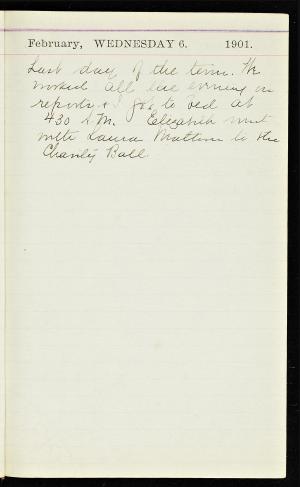 February, WEDNESDAY 6. 1901.
Last day of the term. We
worked all the evening on
reports & I got to bed at
4.30 A.M. Elizabeth went
with Laura to the
Charity Ball